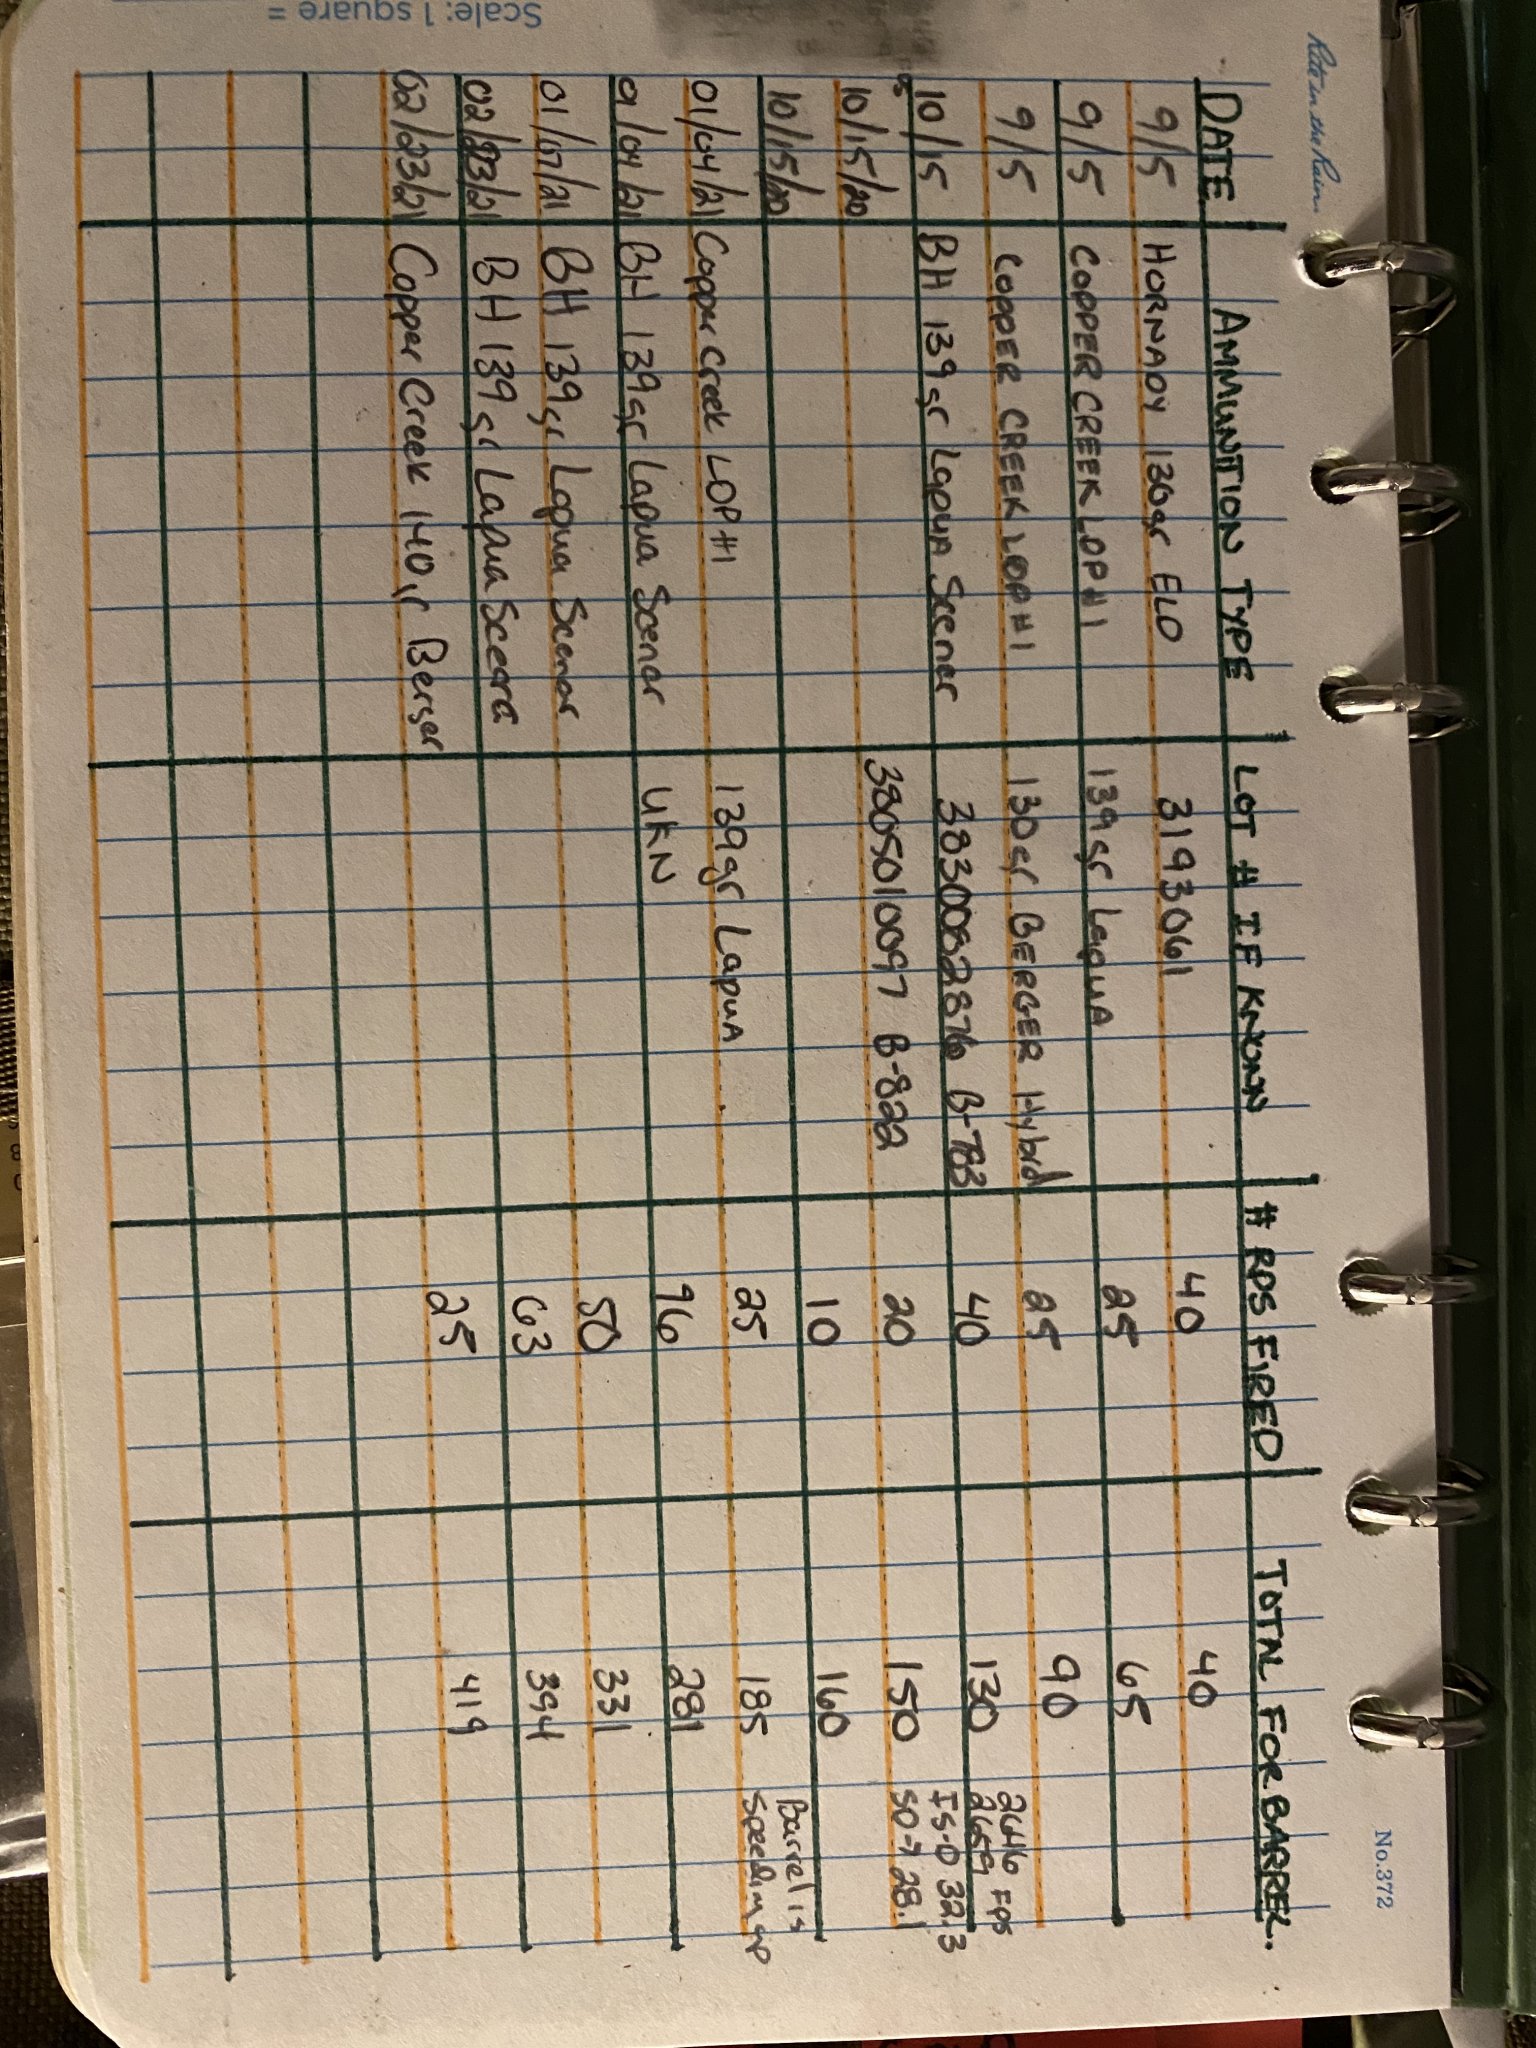 Rite in the Rain
No.372
DATE AMMUNITION TYPE LOT # IF KNOWN # RDS FIRED TOTAL FOR BARREL.
9/5 HORNADY 130gr ELD 3193061 40 40
9/5 COPPER CREEK LOPH1 139gr Lapua 25 65
9/5 COPPER CREEK LOPH1 130gr BERGER Hybrid 25 90
10/15 BH 139gr Lapua Scenar 3830082876 B-783 40 130
2646 2659 FPS
10/15/20 3805010097 B-822 20 150
32.3
28.1
10/15/20 10 160
01/04/21 Copper Creek LOPH1 139gr Lapua. 25 185
Barrel is
Speeding up
9/04/21 BH 139gr Lapua Scenar UKN 96 281
01/07/21 BH 139gr Lapua Scenar 50 331
02/23/21 BH 139gr Lapua Sceara 63 394
02/23/21 Copper Creek 140gr Berger 25 419
Scale: 1 square =